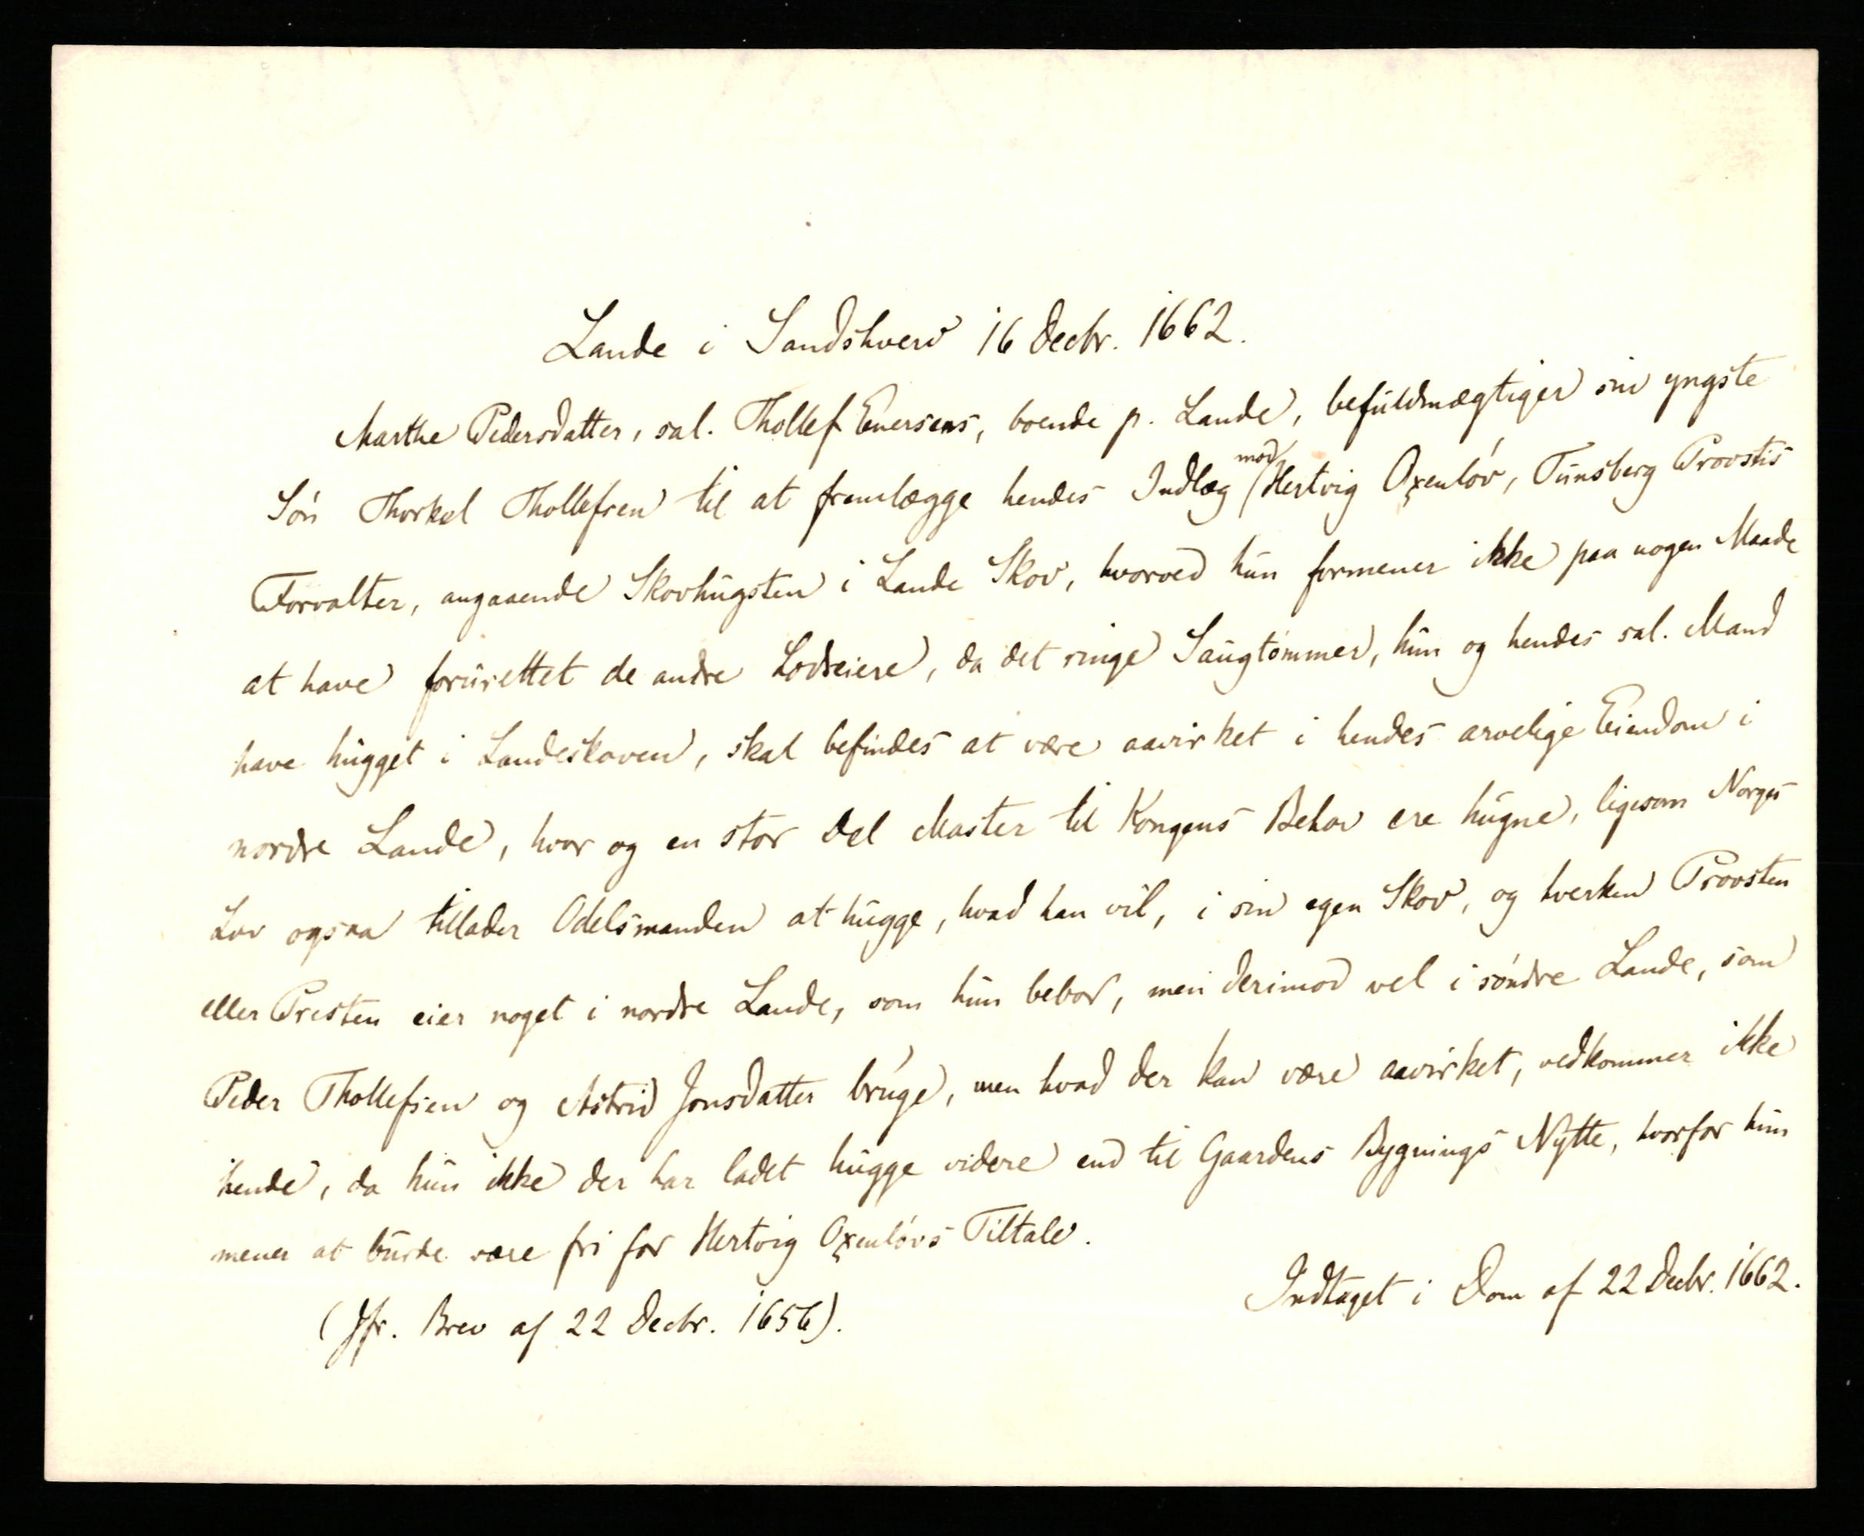 Lande i Sandshverv 16 Decbr. 1662.
Marthe Pedersdatter, sal. Thollef Enersens, boende p. Lande, befuldmægtiger sin yngste
Sön Thorkel Thollefsen til at fremlægge hendes Indlæg mod Hertvig Oxenlöv, Tunsberg Provstis
Forvalter, angaaende Skovhugsten i Lande Skov, hvorved hun formener ikke paa nogen Maade
at have forurettet de andre Lodseiere, da det ringe Saugtömmer, hun og hendes sal. Mand
have hugget i Landeskoven, skal befindes at være aavirket i hendes arvelige Eiendom i
nordre Lande, hvor og en stor Del Master til Kongens Behov ere hugne, ligesom Norges
Lov ogsaa tillader Odelsmanden at hugge, hvad han vil, i sin egen Skov, og hverken Provsten
eller Presten eier noget i nordre Lande, som hun bebor, men derimod vel i söndre Lande, som
Peder Thollefsen og Astrid Jonsdatter bruge, men hvad der kan være aavirket, vedkommer ikke
hende, da hun ikke der har ladet hugge videre end til Gaardens Bygnings Nytte, hvorfor hun
mener at burde være fri for Hertvig Oxenlövs Tiltale.
(Jfr. Brev af 22 Decbr. 1656).
Indtaget i Dom af 22 Decbr. 1662.